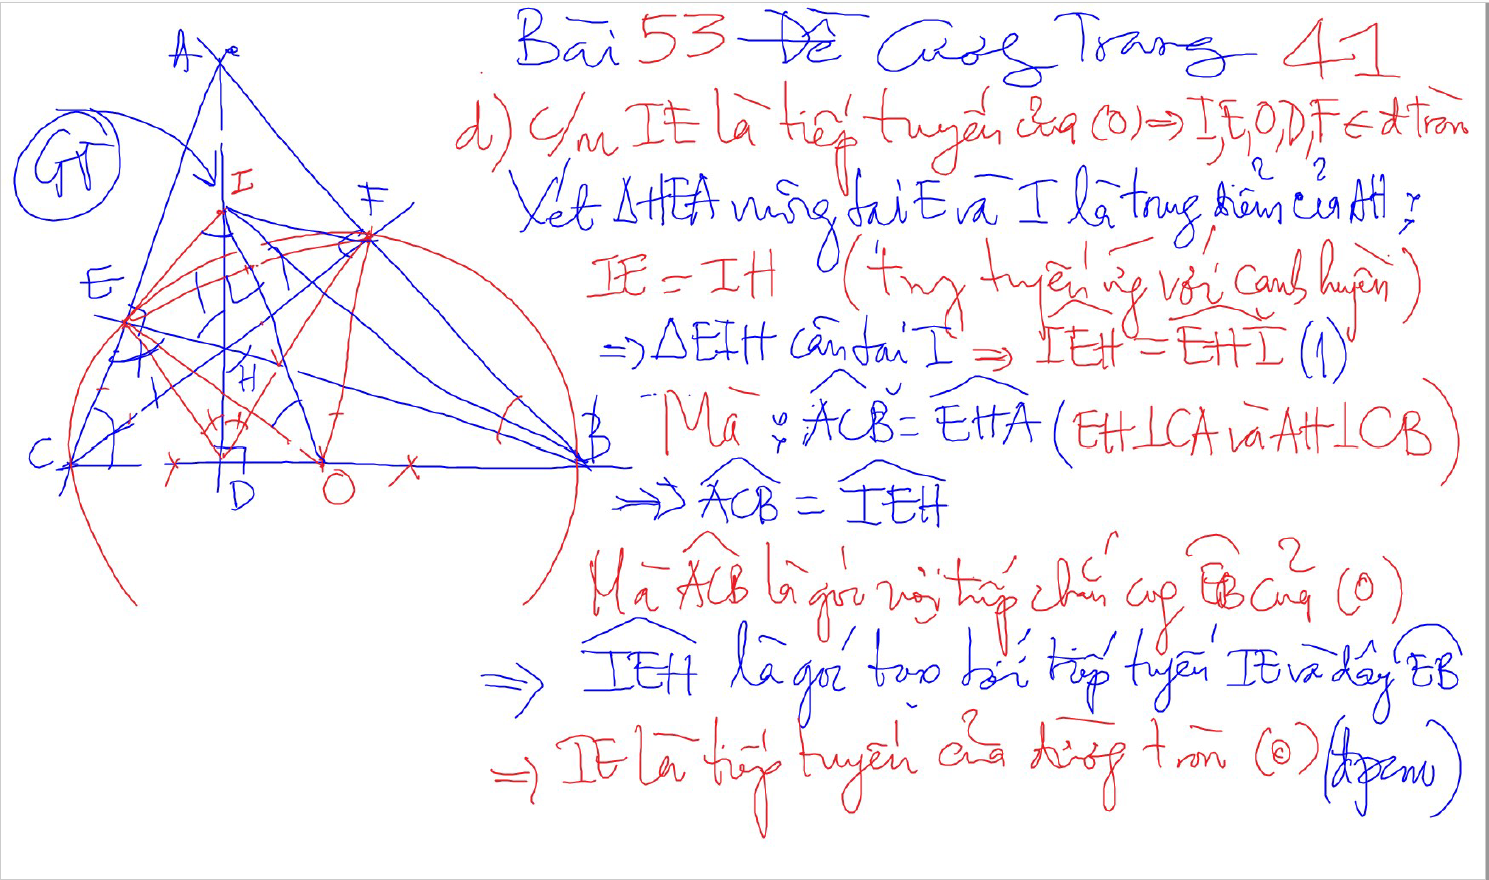 Bài 53 Đề Cương Trang 41
d) C/m IE là tiếp tuyến của (O) => I,E,O,D,F ∈ đtròn
Xét ΔHEA vuông tại E và I là trung điểm của AH:
IE = IH (trung tuyến ứng với cạnh huyền)
=> ΔEIH cân tại I => IEH = EHI (1)
Mà : ACB = EHA (EH⊥CA và AH⊥CB)
=> ACB = IEH
Mà ACB là góc nội tiếp chắn cung EB của (O)
=> IEH là góc tạo bởi tiếp tuyến IE và dây EB
=> IE là tiếp tuyến của đường tròn (O) (đpcm)
A
GT
I
F
E
H
C
B
D
O